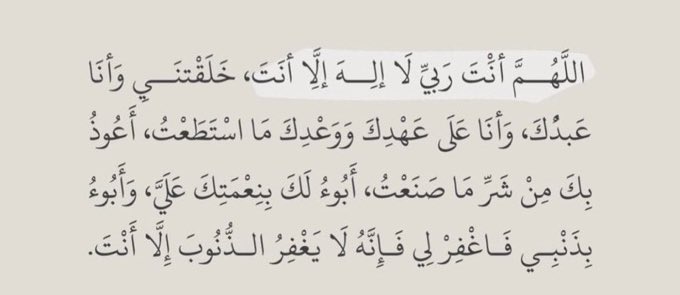 اللَّهُمَّ أنْتَ رَبِيِّ لَا إلهَ إلَّا أنتَ، خَلَقْتنَي وَأنَا
عَبدُكَ، وَأنَا عَلَى عَهْدِكَ وَوَعْدِكَ مَا اسْتَطَعْتُ، أَعُوذُ
بِكَ مِنْ شَرِّ مَا صَنَعْتُ، أَبُوءُ لَكَ بِنِعْمَتِكَ عَلَيَّ، وَأَبُوءُ
بِذَنْبِي فَاغْفِرْ لِي فَإِنَّهُ لَا يَغْفِرُ الذُّنُوبَ إِلَّا أَنْتَ.